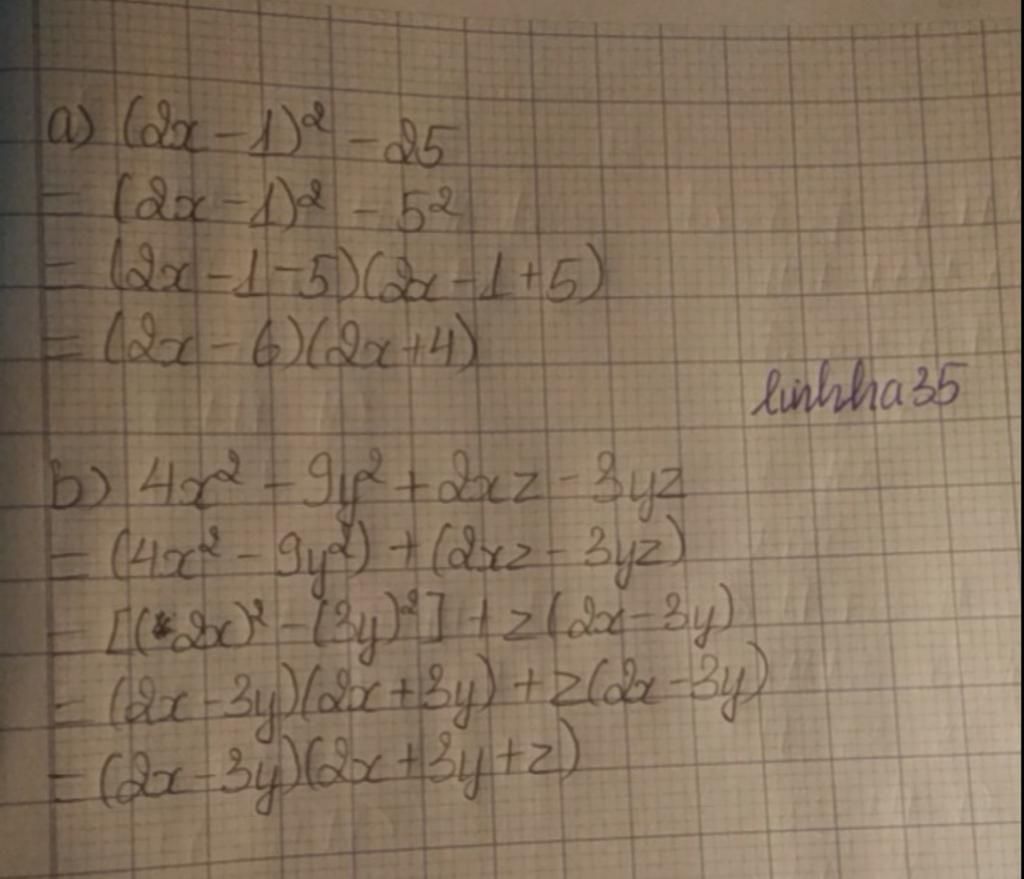 a) (2x - 1)² - 25
= (2x - 1)² - 5²
= (2x - 1 - 5)(2x - 1 + 5)
= (2x - 6)(2x + 4)
linhha35
b) 4x² - 9y² + 2xz - 3yz
= (4x² - 9y²) + (2xz - 3yz)
= [(2x)² - (3y)²] + z(2x - 3y)
= (2x - 3y)(2x + 3y) + z(2x - 3y)
= (2x - 3y)(2x + 3y + z)